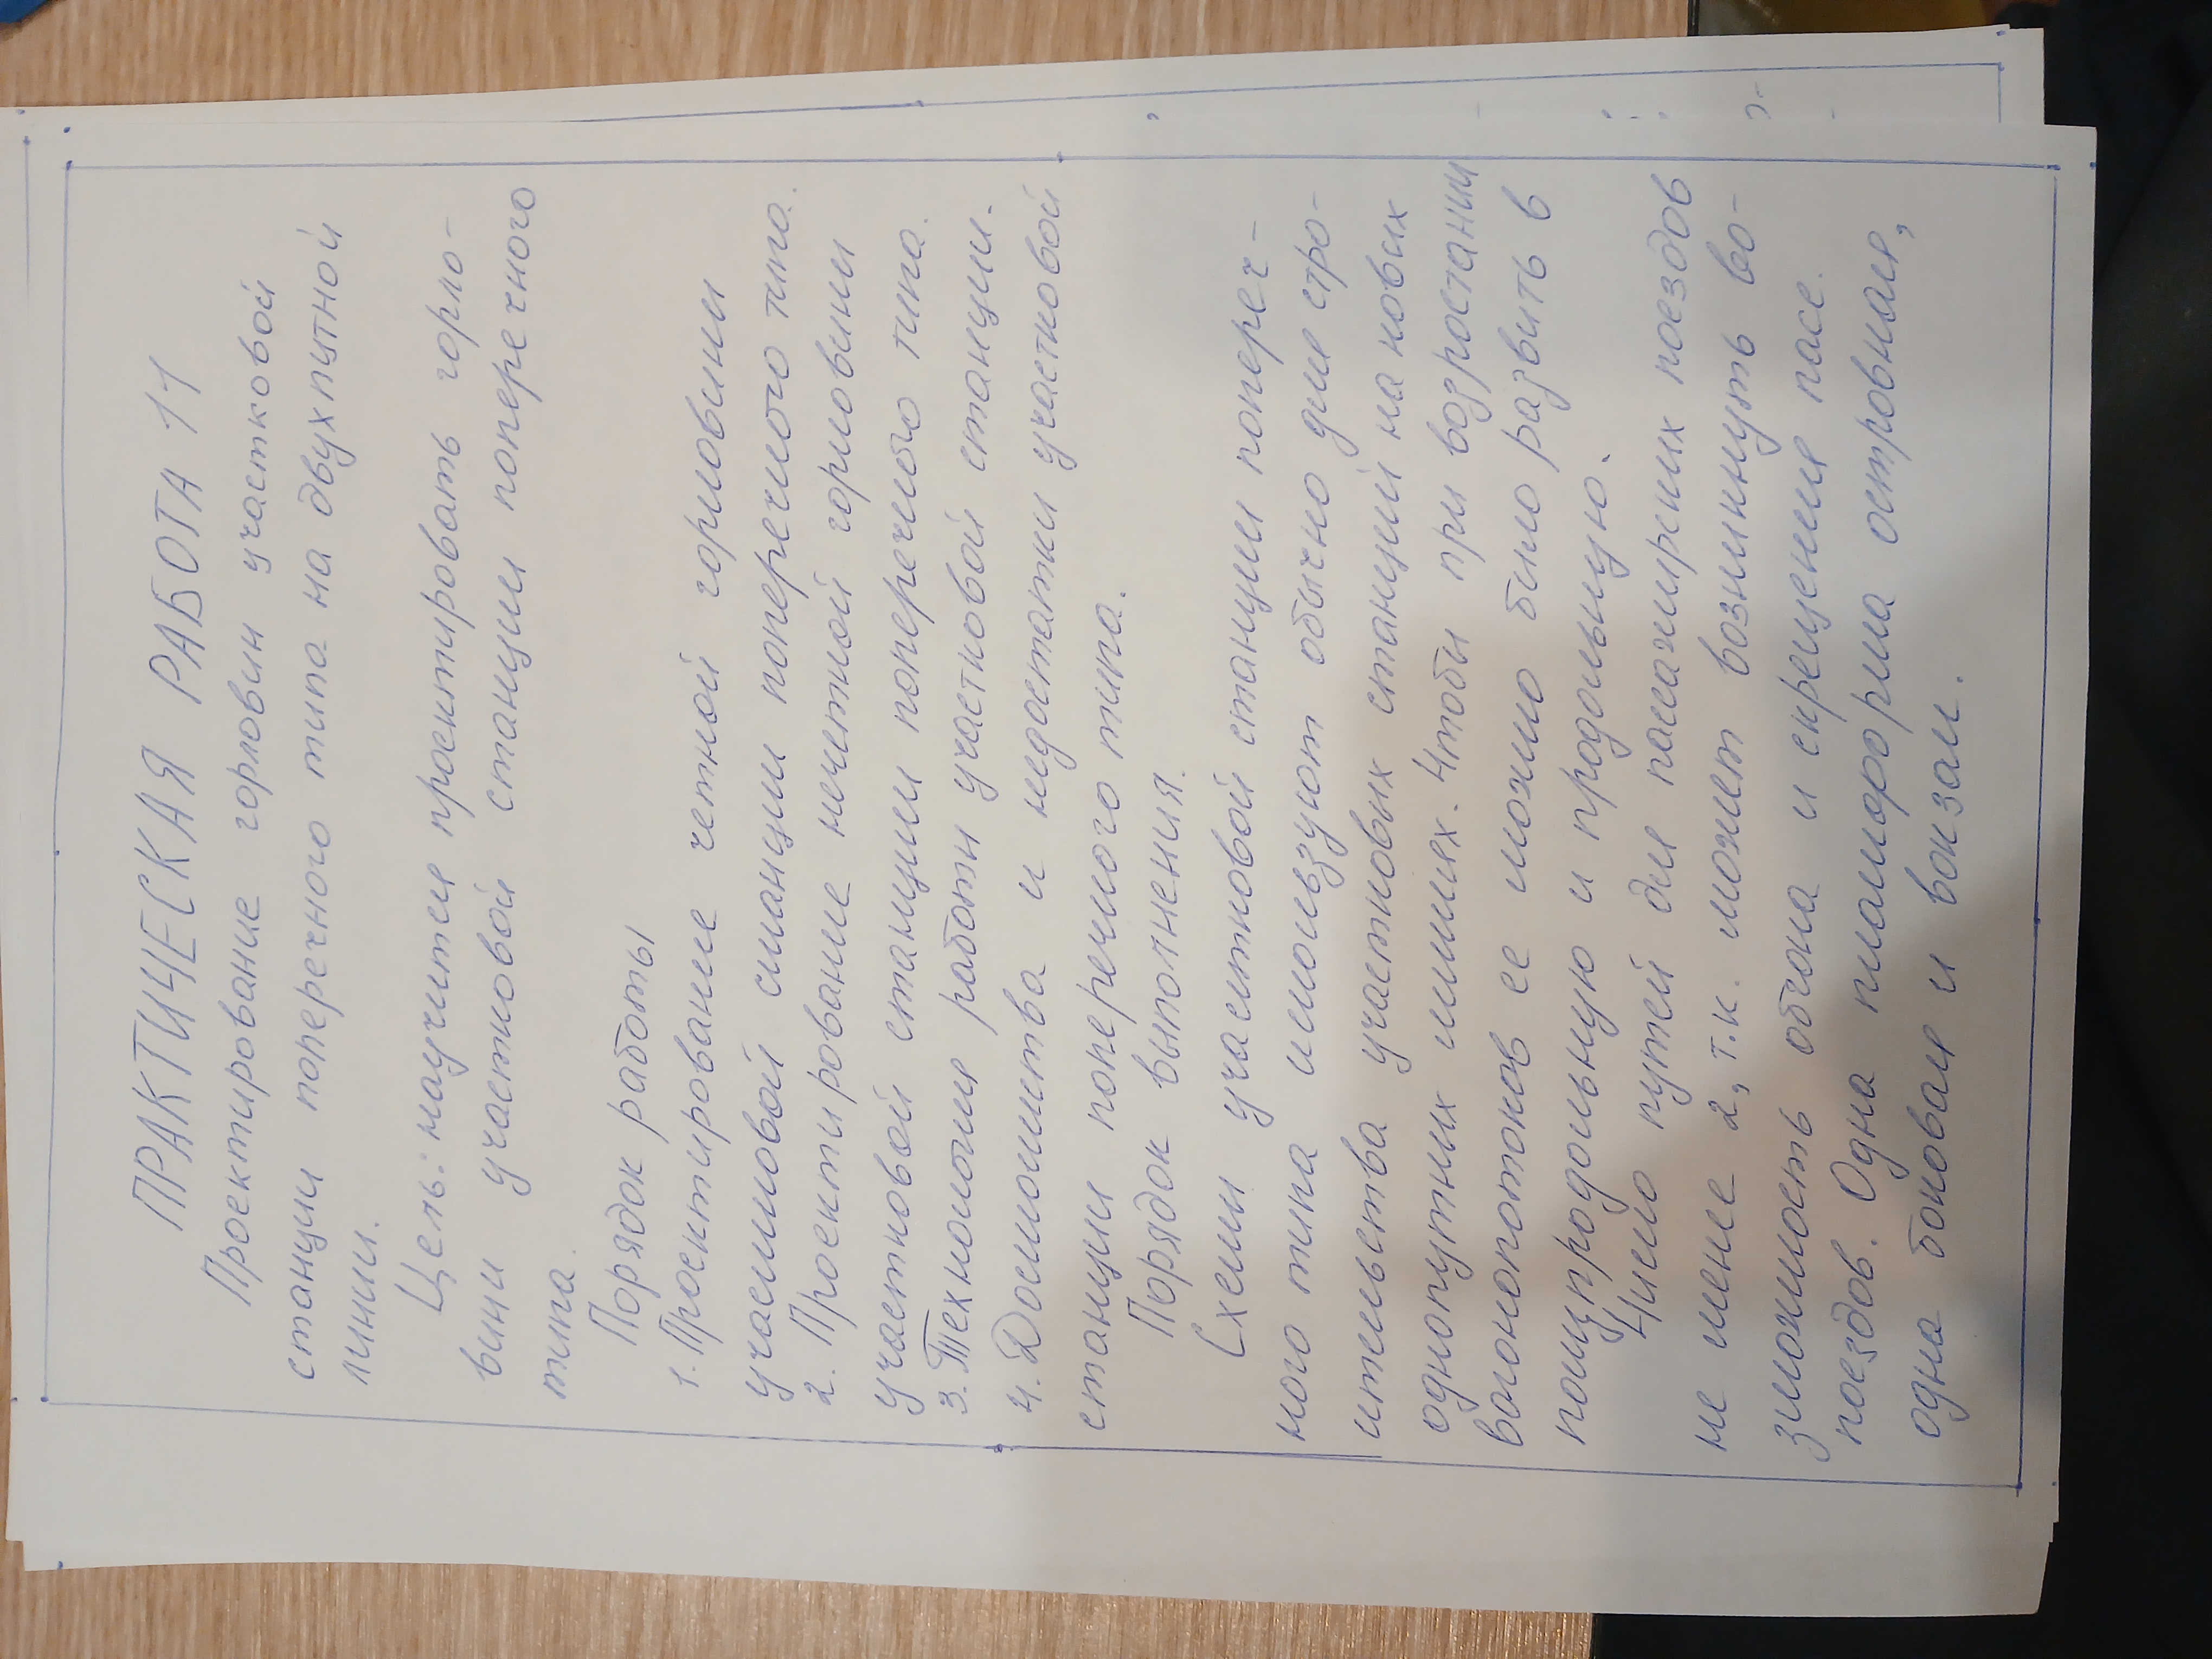 ПРАКТИЧЕСКАЯ РАБОТА 11
Проектирование горловин участковой
станции поперечного типа на двухпутной
линии.
Цель: научится проектировать горло-
вини участковой станции поперечного
типа.
Порядок работы
1. Проектирование четной горловини
участковой станции поперечного типа.
2. Проектирование нечетной горловини
участковой станции поперечного типа.
3. Технология работи участковой станции.
4. Достоинства и недостатки участковой
станции поперечного типа.
Порядок выполнения.
Схеми участковой станции попереч-
ного типа используют обычно для стро-
ительства участковых станций на новых
однопутних линиях. Чтоби при возростании
вагонопотоков ее можно било развить в
полупродольную и продольную.
Число путей для пассажирских поездов
не менее 2, т.к. может возникнуть во-
зможность обгона и скрещения пасс.
поездов. Одна платформа островная,
одна боковая и вокзал.